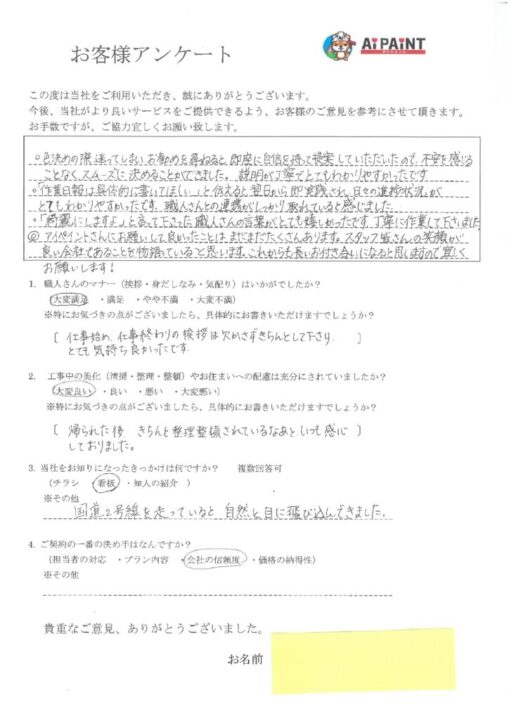 お客様アンケート
AiPAiNT
この度は当社をご利用いただき、誠にありがとうございます。
今後、当社がより良いサービスをご提供できるよう、お客様のご意見を参考にさせて頂きます。
お手数ですが、ご協力宜しくお願い致します。
○色決めの際、迷ってしまい、お勧めを尋ねると、即座に自信を持って提案していただいたので、不安を感じ
ることなく、スムーズに決めることができました。説明が丁寧でとてもわかりやすかったです。
○「作業日報は具体的に書いてほしい。」と伝えると翌日から即実践され、日々の進捗状況が
とてもわかりやすかったです。職人さんとの連携がしっかり取れていると感じました。
○「綺麗にしますよ。」と言って下さった職人さんの言葉がとても嬉しかったです。丁寧に作業して下さいました。
◎ アイペイントさんにお願いして良かったことは、まだまだたくさんあります。スタッフ皆さんの笑顔が
良い会社であることを物語っていると思います。これからも長いお付き合いになると思いますので宜しく
お願いします！
1. 職人さんのマナー（挨拶・身だしなみ・気配り）はいかがでしたか？
（大変満足 ・満足 ・やや不満 ・大変不満）
※特にお気づきの点がございましたら、具体的にお書きいただけますでしょうか？
［ 仕事始め、仕事終わりの挨拶は欠かさずきちんとして下さり、 ］
とても気持ち良かったです。
2. 工事中の美化（清掃・整理・整頓）やお住まいへの配慮は充分にされていましたか？
（大変良い ・良い ・悪い ・大変悪い）
※特にお気づきの点がございましたら、具体的にお書きいただけますでしょうか？
［ 帰られた後、きちんと整理整頓されているなあといつも感心 ］
しておりました。
3. 当社をお知りになったきっかけは何ですか？ 複数回答可
（チラシ ・看板 ・知人の紹介 ）
※その他
国道2号線を走っていると自然と目に飛び込んできました。
4. ご契約の一番の決め手はなんですか？
（担当者の対応 ・プラン内容 ・会社の信頼度 ・価格の納得性）
※その他
貴重なご意見、ありがとうございました。
お名前